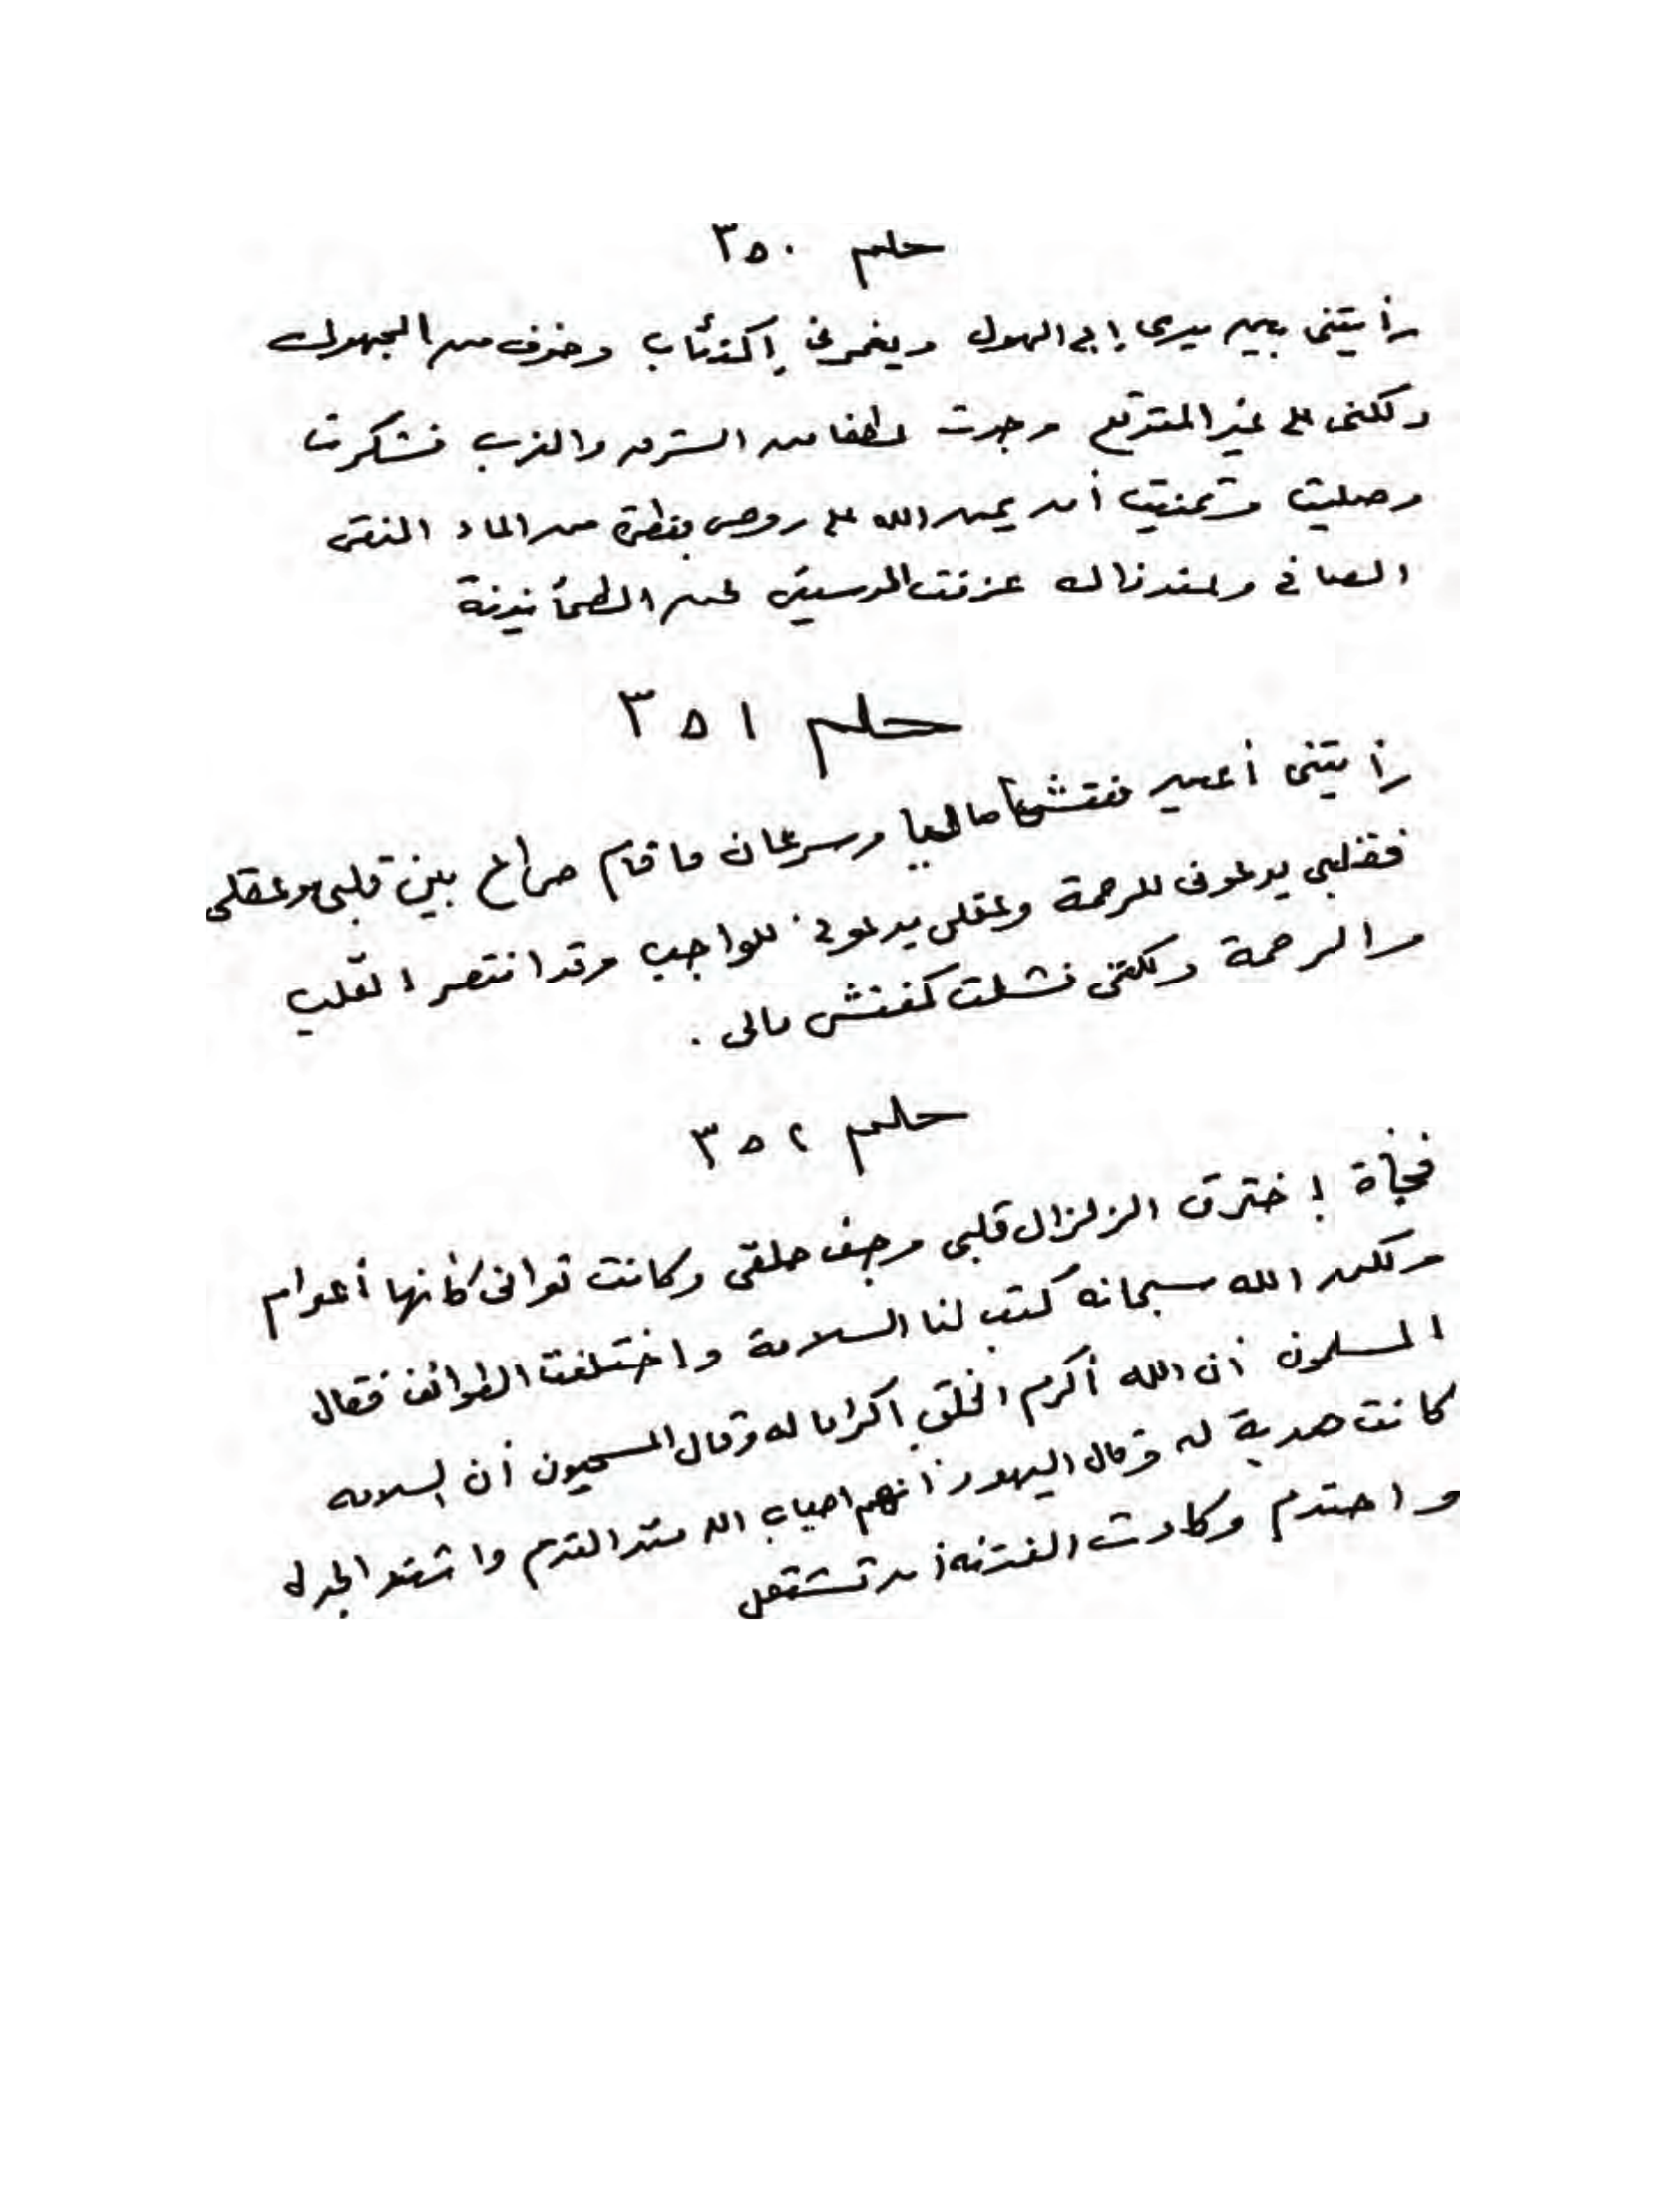 حلم ٣٥٠
رأيتنى بين يدى أبى الهول ويغمرنى إكتئاب وخوف من المجهول
ولكنى على غير المتوقع وجدت عطفا من الشرق والغرب فشكرت
وصليت وتمنيت أن يمن الله على روحى بقطرة من الماء النقى
الصافى وعند ذاك عزفت الموسيقى لحن الطمأنينة
حلم ٣٥١
رأيتنى أعين مفتشا ماليا وسرعان ما قام صراع بين قلبى وعقلى
فقلبى يدعونى للرحمة وعقلى يدعونى للواجب وقد انتصر القلب
والرحمة ولكنى فشلت كمفتش مالى .
حلم ٣٥٢
فجأة إخترق الزلزال قلبى وجف حلقى وكانت ثوانى كأنها أعوام
ولكن الله سبحانه كتب لنا السلامة واختلفت الطوائف فقال
المسلمون أن الله أكرم الخلق إكراما له وقال المسحيون أن السلامه
كانت هدية له وقال اليهود أنهم احباب الله منذ القدم واشتد الجدل
واحتدم وكادت الفتنه أن تشتعل